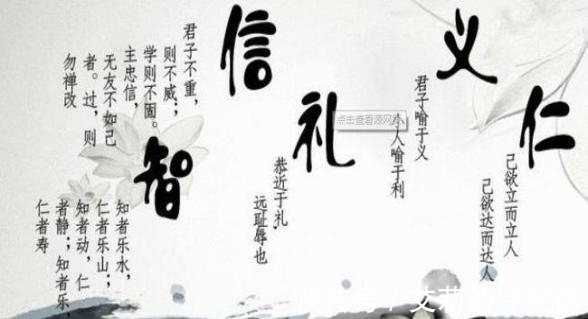 仁
己欲立而立人
己欲达而达人
义
君子喻于义
人喻于利
点击查看源网页
礼
恭近于礼,
远耻辱也
信
君子不重,
则不威;
学则不固。
主忠信,
无友不如己
者。过,则
勿禅改
智
知者乐水,
仁者乐山;
知者动,仁
者静;知者乐,
仁者寿